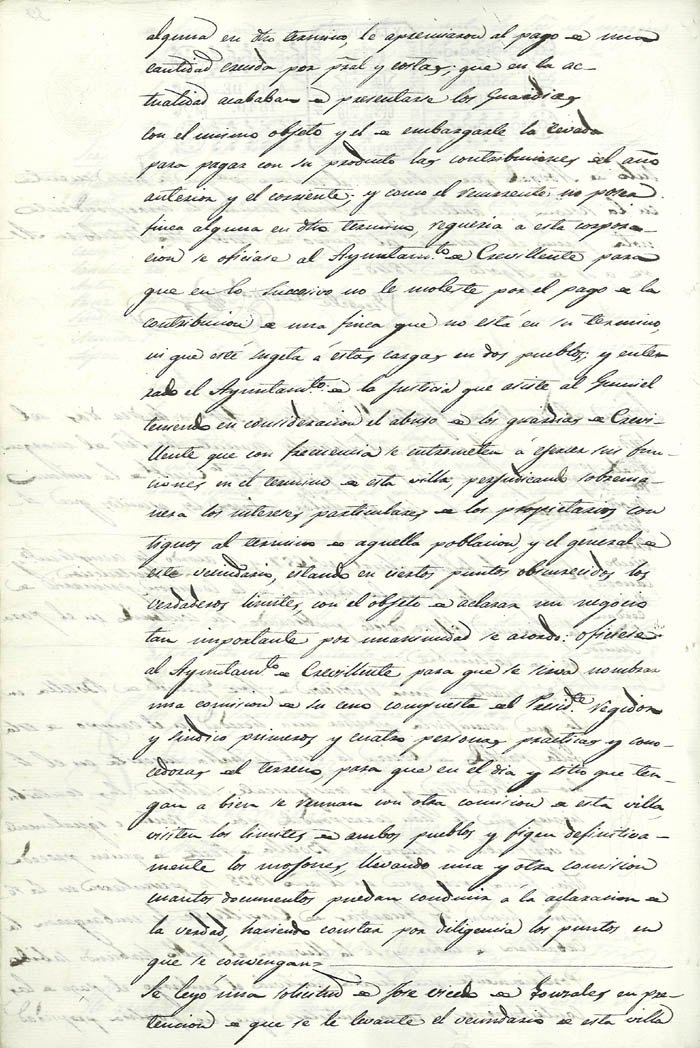 alguna en dho termino, le apremiaron al pago de una
cantidad crecida por pral y costas; que en la ac-
tualidad acababan de presentarse los Guardias
con el mismo objeto y el de embargarle la cevada
para pagar con su producto las contribuciones del año
anterior y el corriente; y como el recurrente no posea
finca alguna en dho termino, requeria a esta corpora-
cion se oficiase al Ayuntam.to de Crevillente para
que en lo sucesivo no le moleste por el pago de la
contribucion de una finca que no está en su termino,
ni que esté sugeta a estas cargas en dos pueblos; y ente-
rado el Ayuntam.to de la justicia que asiste al
teniendo en consideracion el abuso de los guardias de Crevi-
llente que con frecuencia se entrometen á ejercer sus fun-
ciones en el termino de esta villa, perjudicando sobrema-
nera los intereses particulares de los propietarios con-
tiguos al termino de aquella poblacion, y el general de
este vecindario, estando en ciertos puntos obscurecidos los
verdaderos limites, con el objeto de aclarar un negocio
tan importante por unanimidad se acordó: oficiese
al Ayuntam.to de Crevillente, para que se sirva nombrar
una comision de su seno compuesta del Presid.te Regidor
y Sindico primeros y cuatro personas practicas y cono-
cedoras del terreno para que en el dia y sitio que ten-
gan á bien se reunan con otra comision de esta villa,
visiten los limites de ambos pueblos y figen definitiva-
mente los mojones, llevando una y otra comision
cuantos documentos puedan conducir á la aclaracion de
la verdad, haciendo constar por diligencia los puntos en
que se convengan
Se leyó una solicitud de Jose de Gonzales en pre-
tencion de que se le levante el vecindario de esta villa